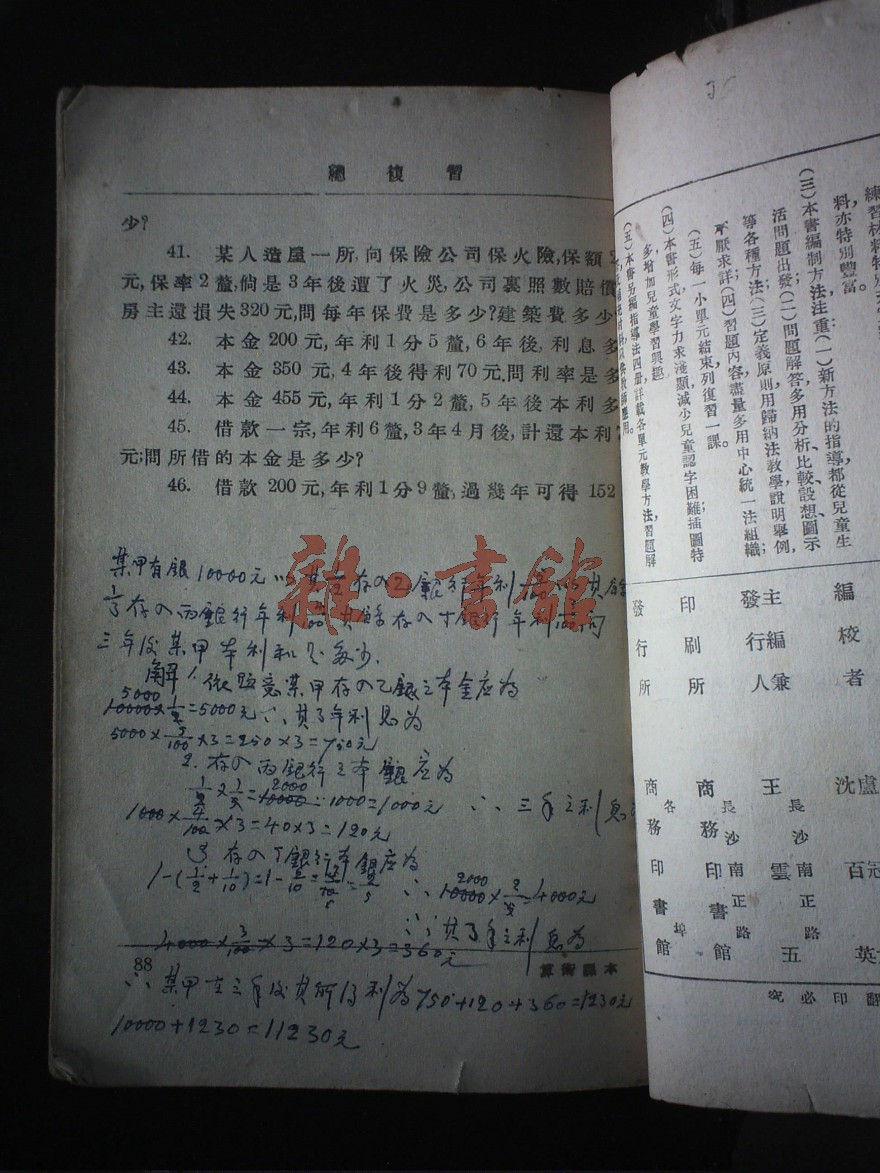 總復習
少?
41. 某人造屋一所,向保險公司保火險,保額
元,保率2釐,倘是3年後遭了火災,公司裏照數賠償
房主還損失320元,問每年保費是多少?建築費多少
42. 本金200元,年利1分5釐,6年後,利息多
43. 本金350元,4年後得利70元.問利率是多
44. 本金455元,年利1分2釐,5年後本利多
45. 借款一宗,年利6釐,3年4月後,計還本利
元;問所借的本金是多少?
46. 借款200元,年利1分9釐,過幾年可得152
某甲有銀10000元以其1/2存入乙銀行年利
存入丙銀行年利 其餘存入丁銀行年利 问
三年後某甲本利和是多少.
解 1. 依照意某甲存入乙銀之本金应为
5000
10000×1/2=5000元 ∴其3年利息为
5000×5/100×3=250×3=750元
2. 存入丙銀行之本銀应为
1/2×1/5= 1000=1000元 ∴三年之利息
1000×4/100×3=40×3=120元
3 存入丁銀行本銀应为
1-(1/2+1/10)=1- ∴ 10000×2/5=4000元
∴其3年之利息为
4000×3/100×3=120×3=360元
88
算術課本
∴某甲在三年後其所得利为750+120+360=1230元
10000+1230=11230元
雜·書館
練習材料特別
料亦特別豐富。
(三)本書編制方法注重(一)新方法的指導都從兒童生
活問題出發(二)問題解答多用分析、比較、設想、圖示
等各種方法(三)定義原則用歸納法教學說明舉例,
不厭求詳(四)習題內容盡量多用中心統一法組織;
(五)每一小單元結束,列復習一課。
(四)本書形式文字力求淺顯減少兒童認字困難插圖特
多增加兒童學習興趣
(五)本書另編指導法四册詳載各單元教學方法,習題解
編校者
主編兼
發行人
印刷所
發行所
沈百英
盧冠
王雲五
長沙南正路
商務印書館
各埠
商務印書館
翻印必究